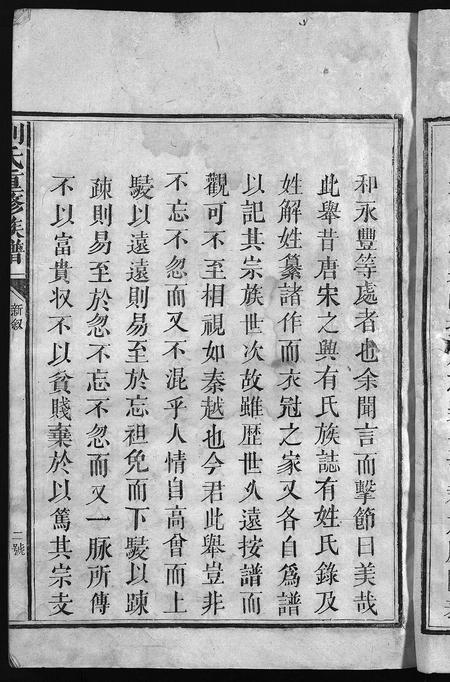 和永豐等處者也余聞言而擊節曰美哉
此舉昔唐宋之興有氏族誌有姓氏錄及
姓解姓纂諸作而衣冠之家又各自為譜
以記其宗族世次故雖歴世久遠按譜而
觀可不至相視如秦越也今君此舉豈非
不忘不忽而又不混乎人情自高曾而上
駸以遠遠則易至於忘袒免而下駸以踈
疎則易至於忽不忘不忽而又一脉所傳
不以富貴收不以貧賤棄於以篤其宗支
劉氏重修族譜
新叙
二號